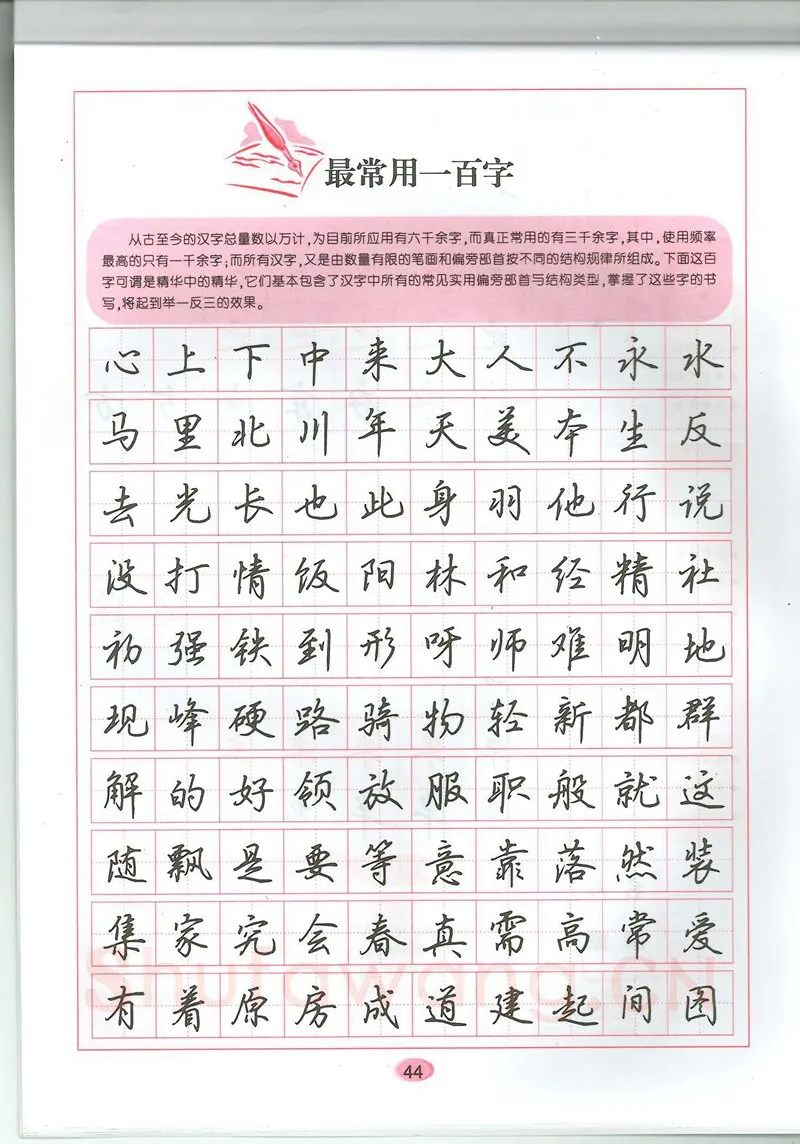 最常用一百字
从古至今的汉字总量数以万计,为目前所应用有六千余字,而真正常用的有三千余字,其中,使用频率
最高的只有一千余字;而所有汉字,又是由数量有限的笔画和偏旁部首按不同的结构规律所组成。下面这百
字可谓是精华中的精华,它们基本包含了汉字中所有的常见实用偏旁部首与结构类型,掌握了这些字的书
写,将起到举一反三的效果。
心上下中来大人不永水
马里北川年天美本生反
去光长也此身羽他行说
没打情饭阳林和经精社
初强铁到形呀师难明地
现峰硬路骑物轻新都群
解的好领放服职般就这
随飘是要等意靠落然装
集家究会春真需高常爱
有着原房成道建起间图
Shufawang.CN
44